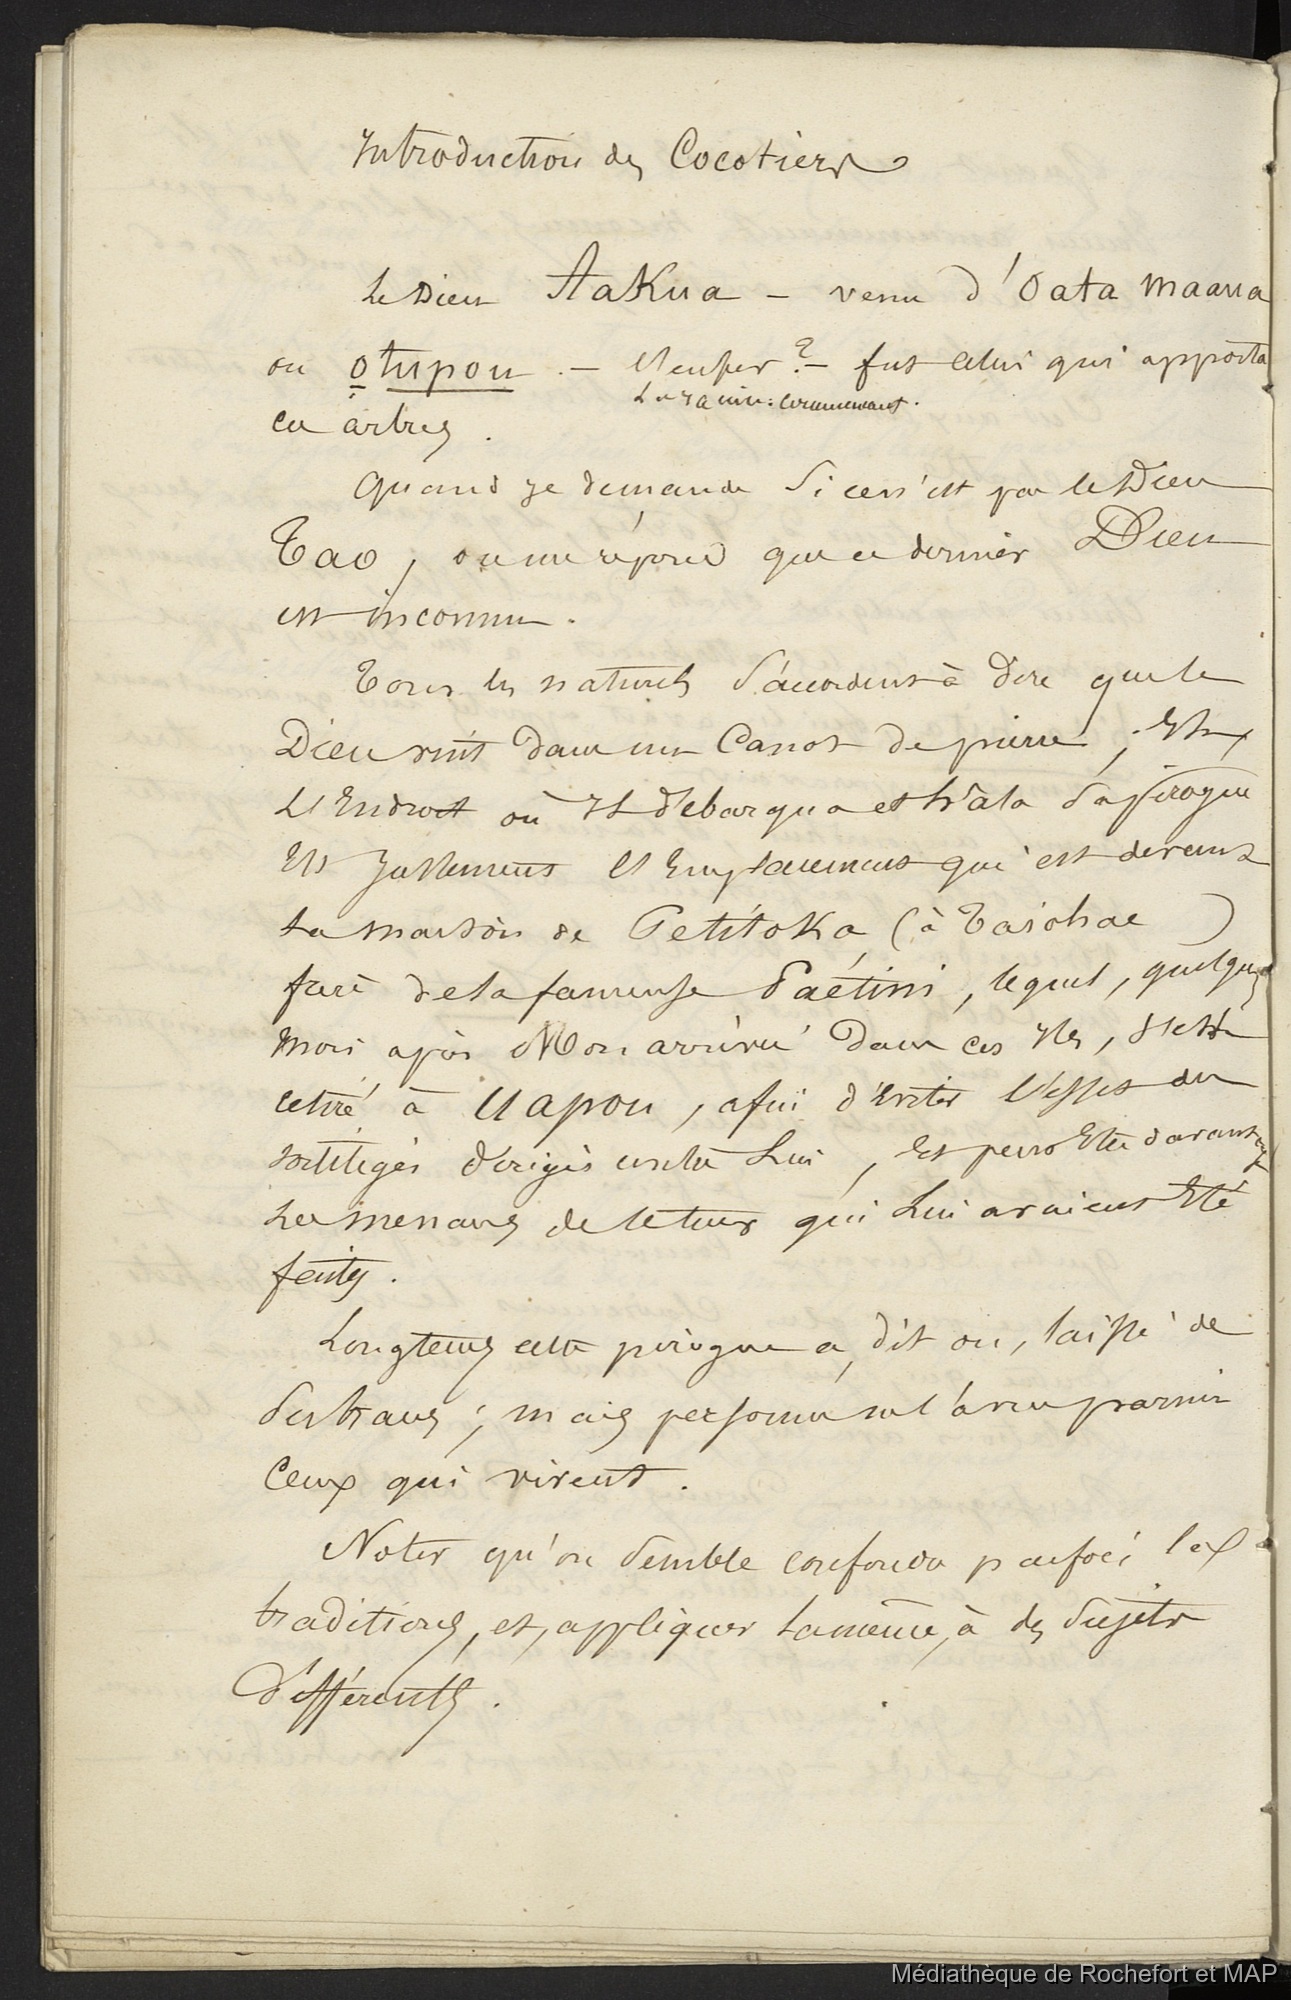 Introduction des Cocotiers
Le Dieu Aakua – venu d'Oata maaua
ou otupou. – l'enfer ? – fut celui qui apporta
ces arbres.
Quand je demande si ce n'est pas le Dieu
Tao, on me répond que ce dernier Dieu
est inconnu.
Tous les naturels s'accordent à dire que le
Dieu vint dans un Canot de pierre ; Et
L'Endroit où Il débarqua et hâla sa pirogue
Est Justement l'Emplacement qui est devant
la maison de Petitoka (à Taiohae )
frère de la fameuse Paétini, lequel, quelques
mois après Mon arrivée dans ces Iles, s'etait
retiré à Uapou, afin d'Eviter l'effet des
sortilèges dirigés contre Lui, Et peut Etre davantage
Les menaces de le tuer qui Lui avaient Eté
faites.
Longtems cette pirogue a, dit on, laissé de
ses traces ; mais personne ne l'a vu parmi
Ceux qui vivent.
Noter qu'on semble confondre parfois les
traditions, et, appliquer la même, à des sujets
différents.
Médiathèque de Rochefort et MAP